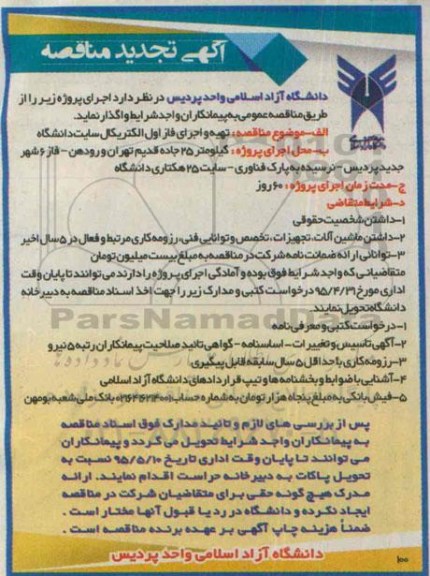 آگهی تجدید مناقصه
دانشگاه آزاد اسلامی واحد پردیس در نظر دارد اجرای پروژه زیر را از
طریق مناقصه عمومی به پیمانکاران واجد شرایط واگذار نماید.
الف-موضوع مناقصه: تهیه و اجرای فاز اول الکتریکال سایت دانشگاه
ب-محل اجرای پروژه: کیلومتر ۲۵ جاده قدیم تهران و رودهن - فاز ۶ شهر
جدید پردیس - نرسیده به پارک فناوری - سایت ۲۵ هکتاری دانشگاه
ج-مدت زمان اجرای پروژه: ۶۰ روز
د-شرایط متقاضی
۱-داشتن شخصیت حقوقی
۲-داشتن ماشین آلات، تجهیزات، تخصص و توانایی فنی، رزومه کاری مرتبط و فعال در ۵ سال اخیر
۳-توانائی ارائه ضمانت نامه شرکت در مناقصه به مبلغ بیست میلیون تومان
متقاضیانی که واجد شرایط فوق بوده و آمادگی اجرای پروژه را دارند می توانند تا پایان وقت
اداری مورخ ۹۵/۴/۳۱ درخواست کتبی و مدارک زیر را جهت اخذ اسناد مناقصه به دبیرخانه
دانشگاه تحویل نمایند.
۱-درخواست کتبی و معرفی نامه
۲-آگهی تاسیس و تغییرات - اساسنامه - گواهی تائید صلاحیت پیمانکاران رتبه ۵ نیرو
۳-رزومه کاری با حداقل ۵ سال سابقه قابل پیگیری
۴-آشنایی با ضوابط و بخشنامه ها و تیپ قراردادهای دانشگاه آزاد اسلامی
۵-فیش بانکی به مبلغ پنجاه هزار تومان به شماره حساب بانک ملی شعبه بومهن
پس از بررسی های لازم و تائید مدارک فوق اسناد مناقصه
به پیمانکاران واجد شرایط تحویل می گردد و پیمانکاران
می توانند تا پایان وقت اداری تاریخ ۹۵/۵/۱۰ نسبت به
تحویل پاکات به دبیرخانه حراست اقدام نمایند. ارائه
مدرک هیچ گونه حقی برای متقاضیان شرکت در مناقصه
ایجاد نکرده و دانشگاه در رد یا قبول آنها مختار است.
ضمناً هزینه چاپ آگهی بر عهده برنده مناقصه است.
دانشگاه آزاد اسلامی واحد پردیس
ParsNamadData